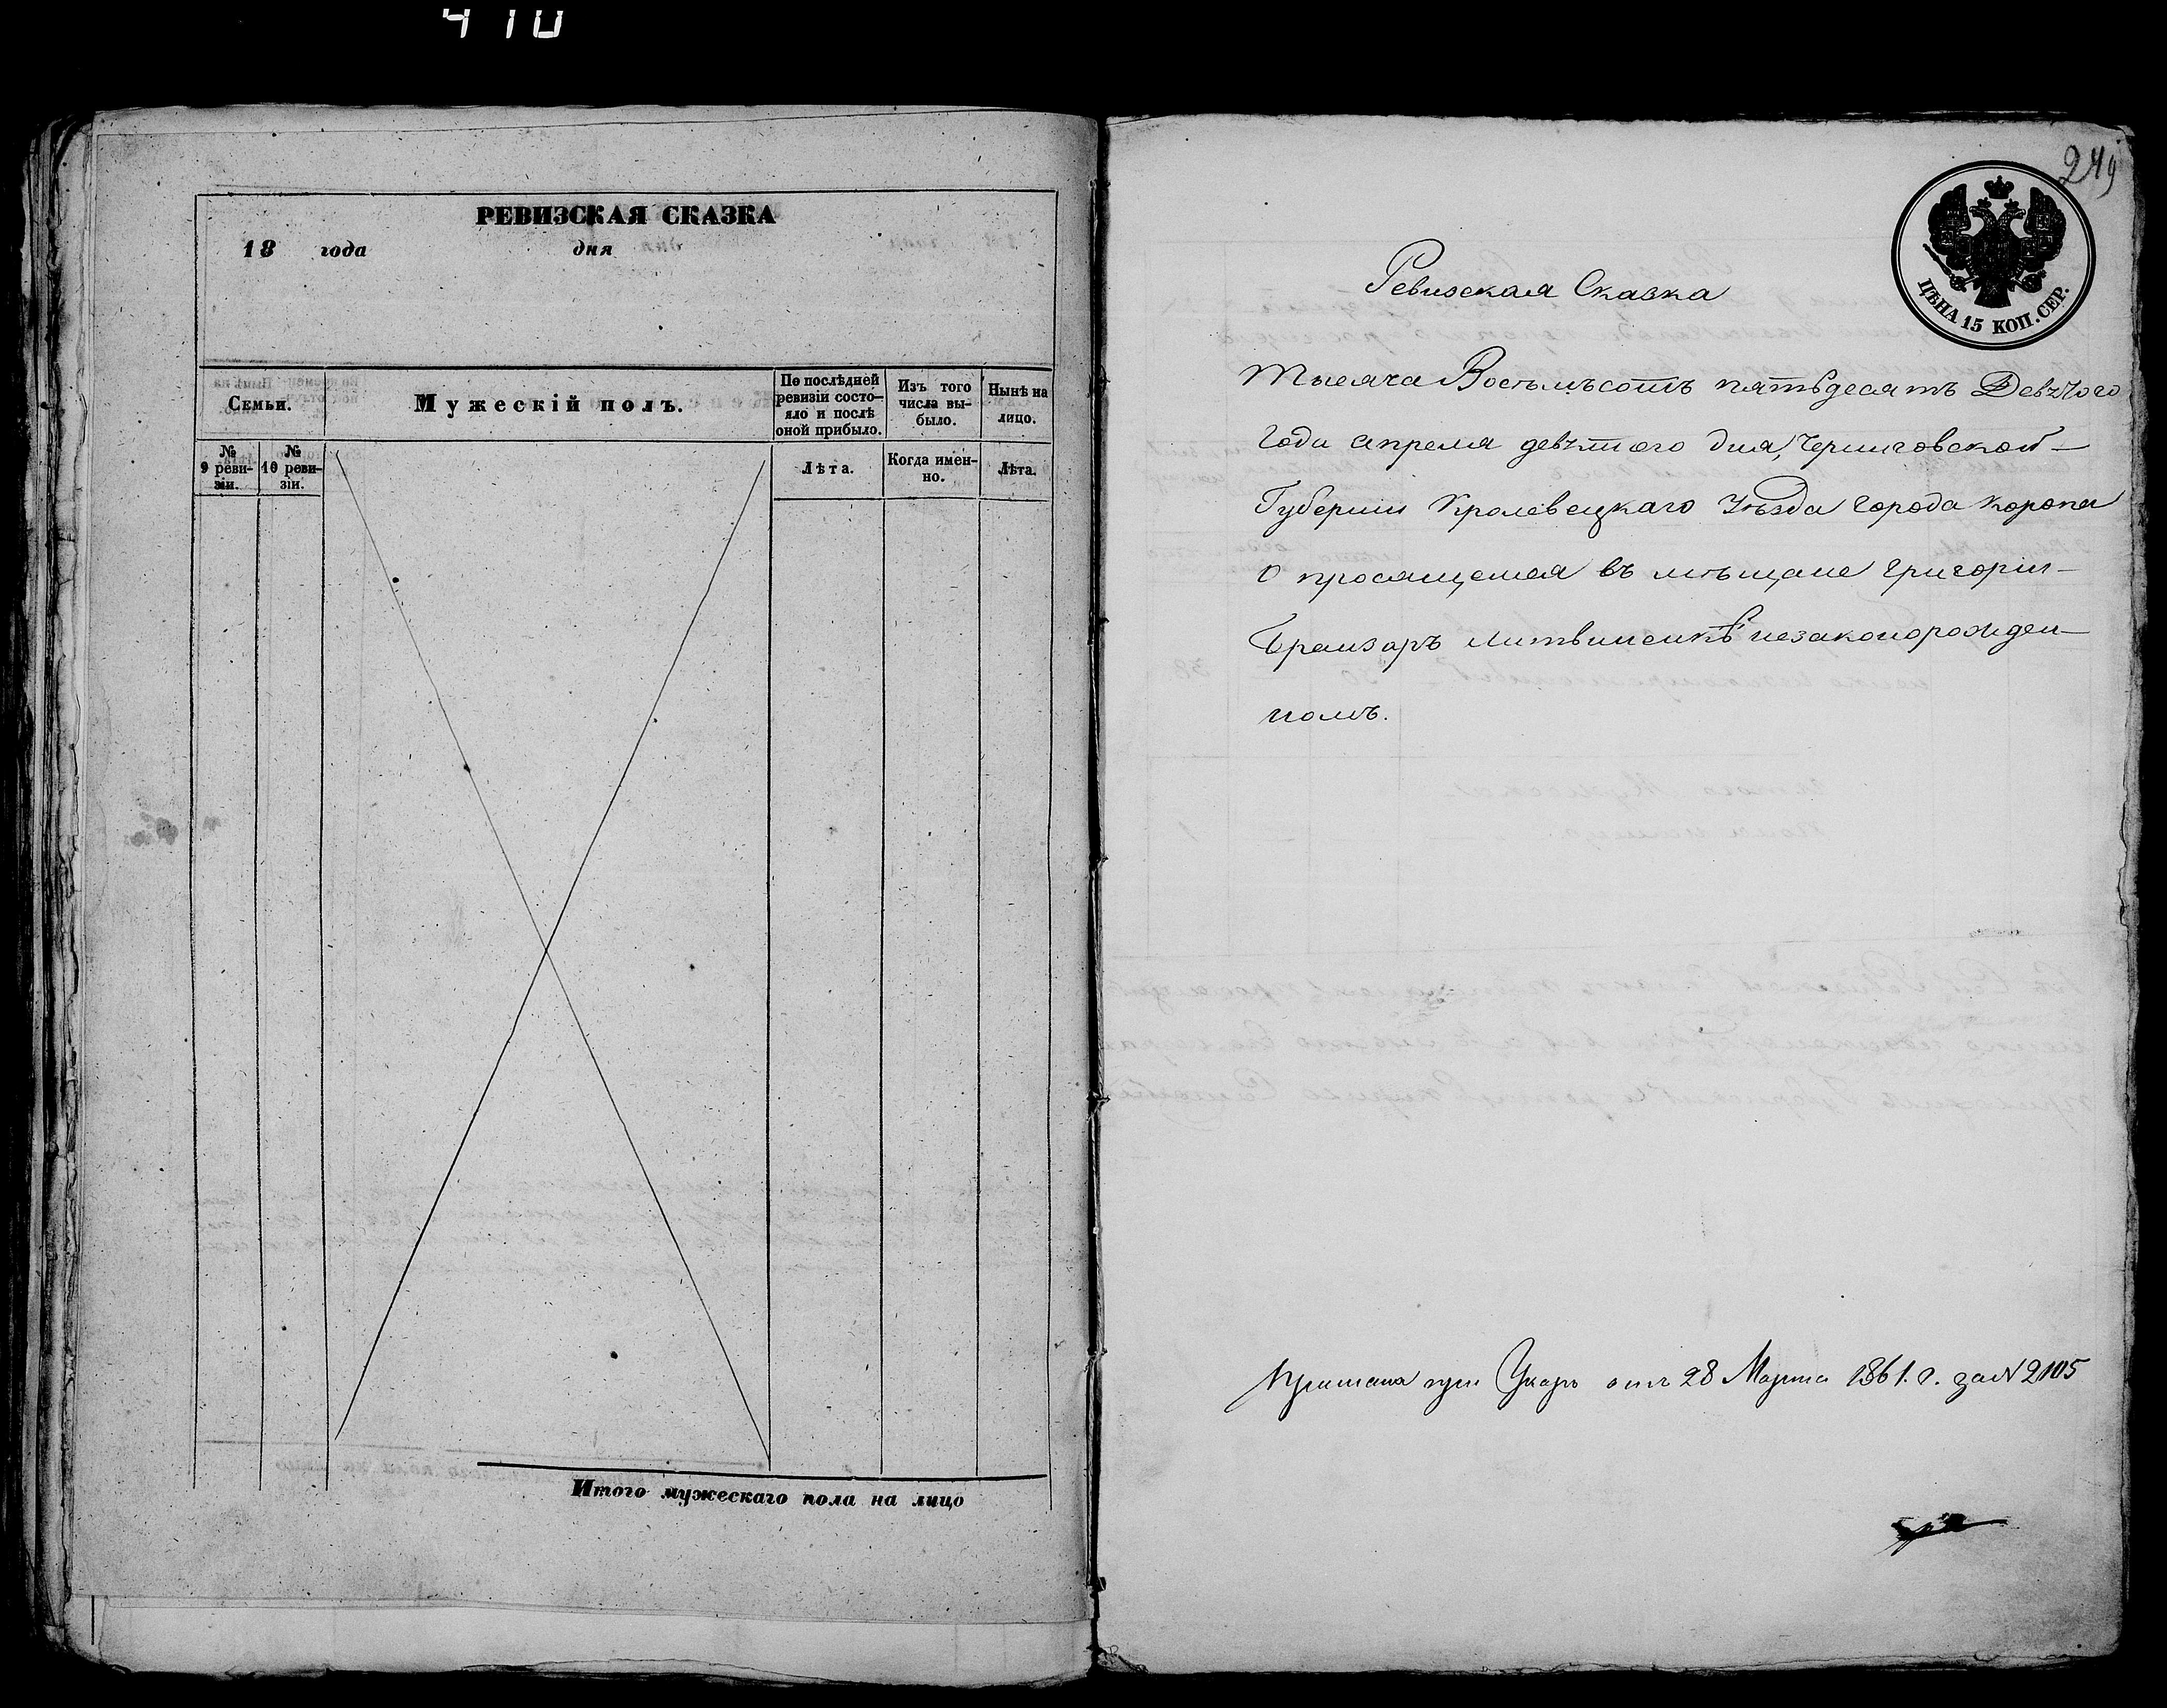 410
РЕВИЗСКАЯ СКАЗКА
18 года дня
Семьи.
Мужескій полъ.
По послѣдней ревизіи состояло и послѣ оной прибыло.
Изъ того числа выбыло.
Нынѣ на лицо.
№ 9 ревизіи.
№ 10 ревизіи.
Лѣта.
Когда именно.
Лѣта.
Итого мужескаго пола на лицо
249
ЦѢНА 15 КОП. СЕР.
Ревизская Сказка
Тысяча Восѣмъсотъ пятьдесятъ Девятого
Года апреля девятого дня, Черниговской
Губерніи Кролевецкаго Уѣзда города Коропа
О просящемся въ мѣщане Григоріи
Литвиненкѣ незаконорожден-
номъ.
при Указѣ отъ 28 Марта 1861. г. за № 2105